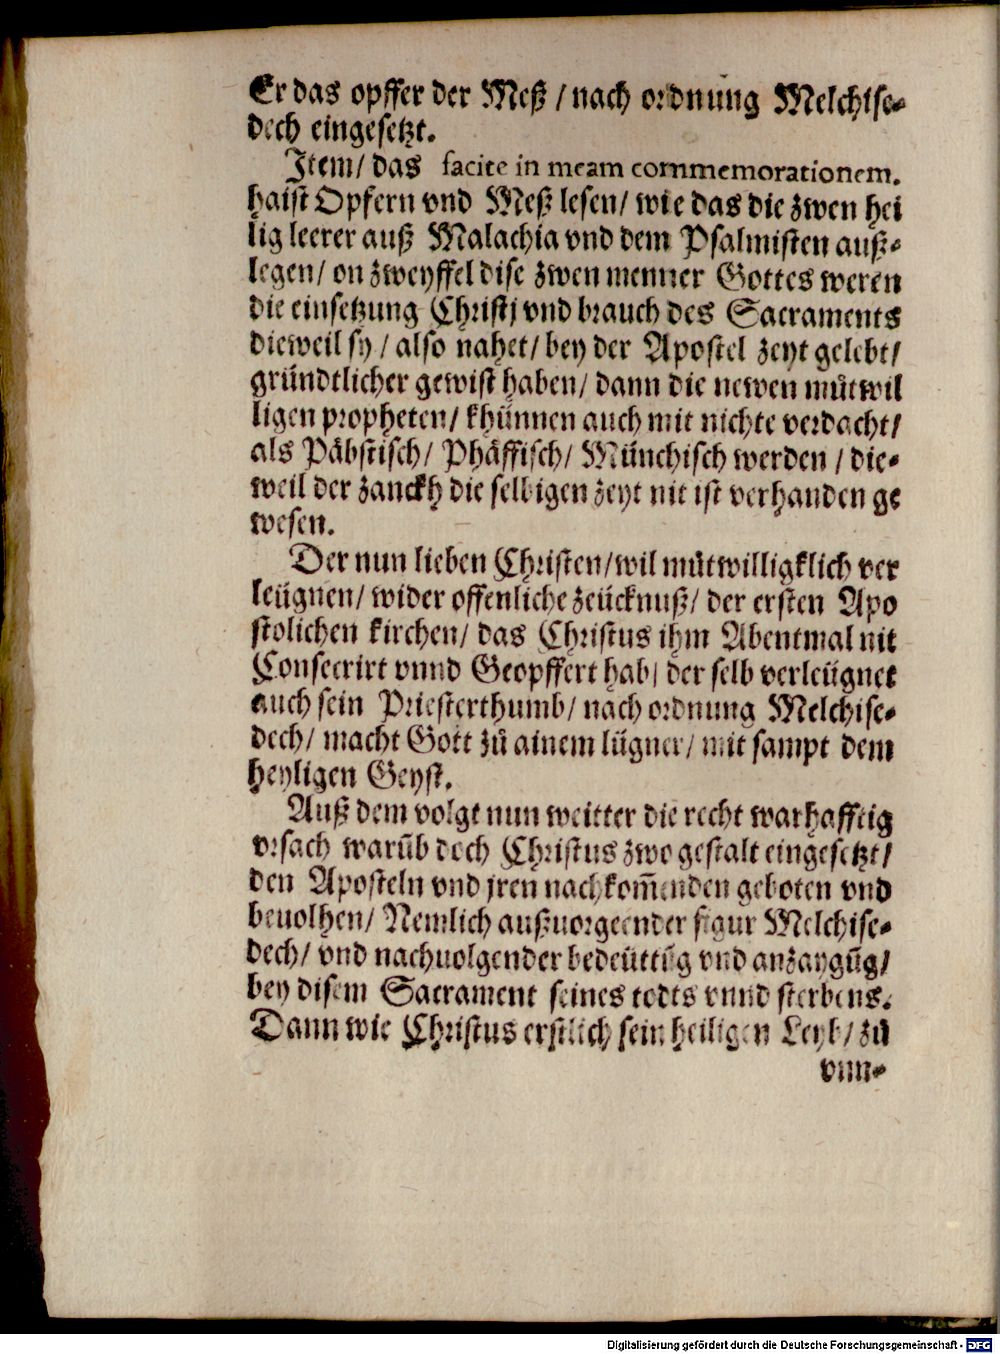 Er das opffer der Meß / nach ordnung Melchise-
dech eingesetzt.
Item/ das facite in meam commemorationem.
haist Opfern vnd Meß lesen/ wie das die zwen hei
lig leerer auß Malachia vnd dem Psalmisten auß-
legen/ on zweyffel dise zwen menner Gottes weren
die einsetzung Christj vnd brauch des Sacraments
dieweil sy / also nahet/ bey der Apostel zeyt gelebt/
gründtlicher gewist haben/ dann die newen můtwil
ligen propheten/ khünnen auch mit nichte verdacht/
als Päbstisch/ Phäffisch/ Münchisch werden / die-
weil der zanckh die selbigen zeyt nit ist verhanden ge
wesen.
Der nun lieben Christen/ wil můtwilligklich ver
leügnen/ wider offenliche zeücknuß/ der ersten Apo
stolichen kirchen/ das Christus ihm Abentmal nit
Consecrirt vnnd Geopffert hab/ der selb verleügnet
auch sein Priesterthumb/ nach ordnung Melchise-
dech/ macht Gott zů ainem lügner/ mit sampt dem
heyligen Geyst.
Auß dem volgt nun weitter die recht warhafftig
vrsach warūb doch Christus zwo gestalt eingesetzt/
den Aposteln vnd jren nachkom̄enden geboten vnd
beuolhen/ Nemlich außuorgeender figur Melchise-
dech/ vnd nachuolgender bedeüttūg vnd anzaygūg/
bey disem Sacrament seines todts vnnd sterbens.
Dann wie Christus erstlich sein heiligen Leyb/ zů
vnn-
Digitalisierung gefördert durch die Deutsche Forschungsgemeinschaft - DFG